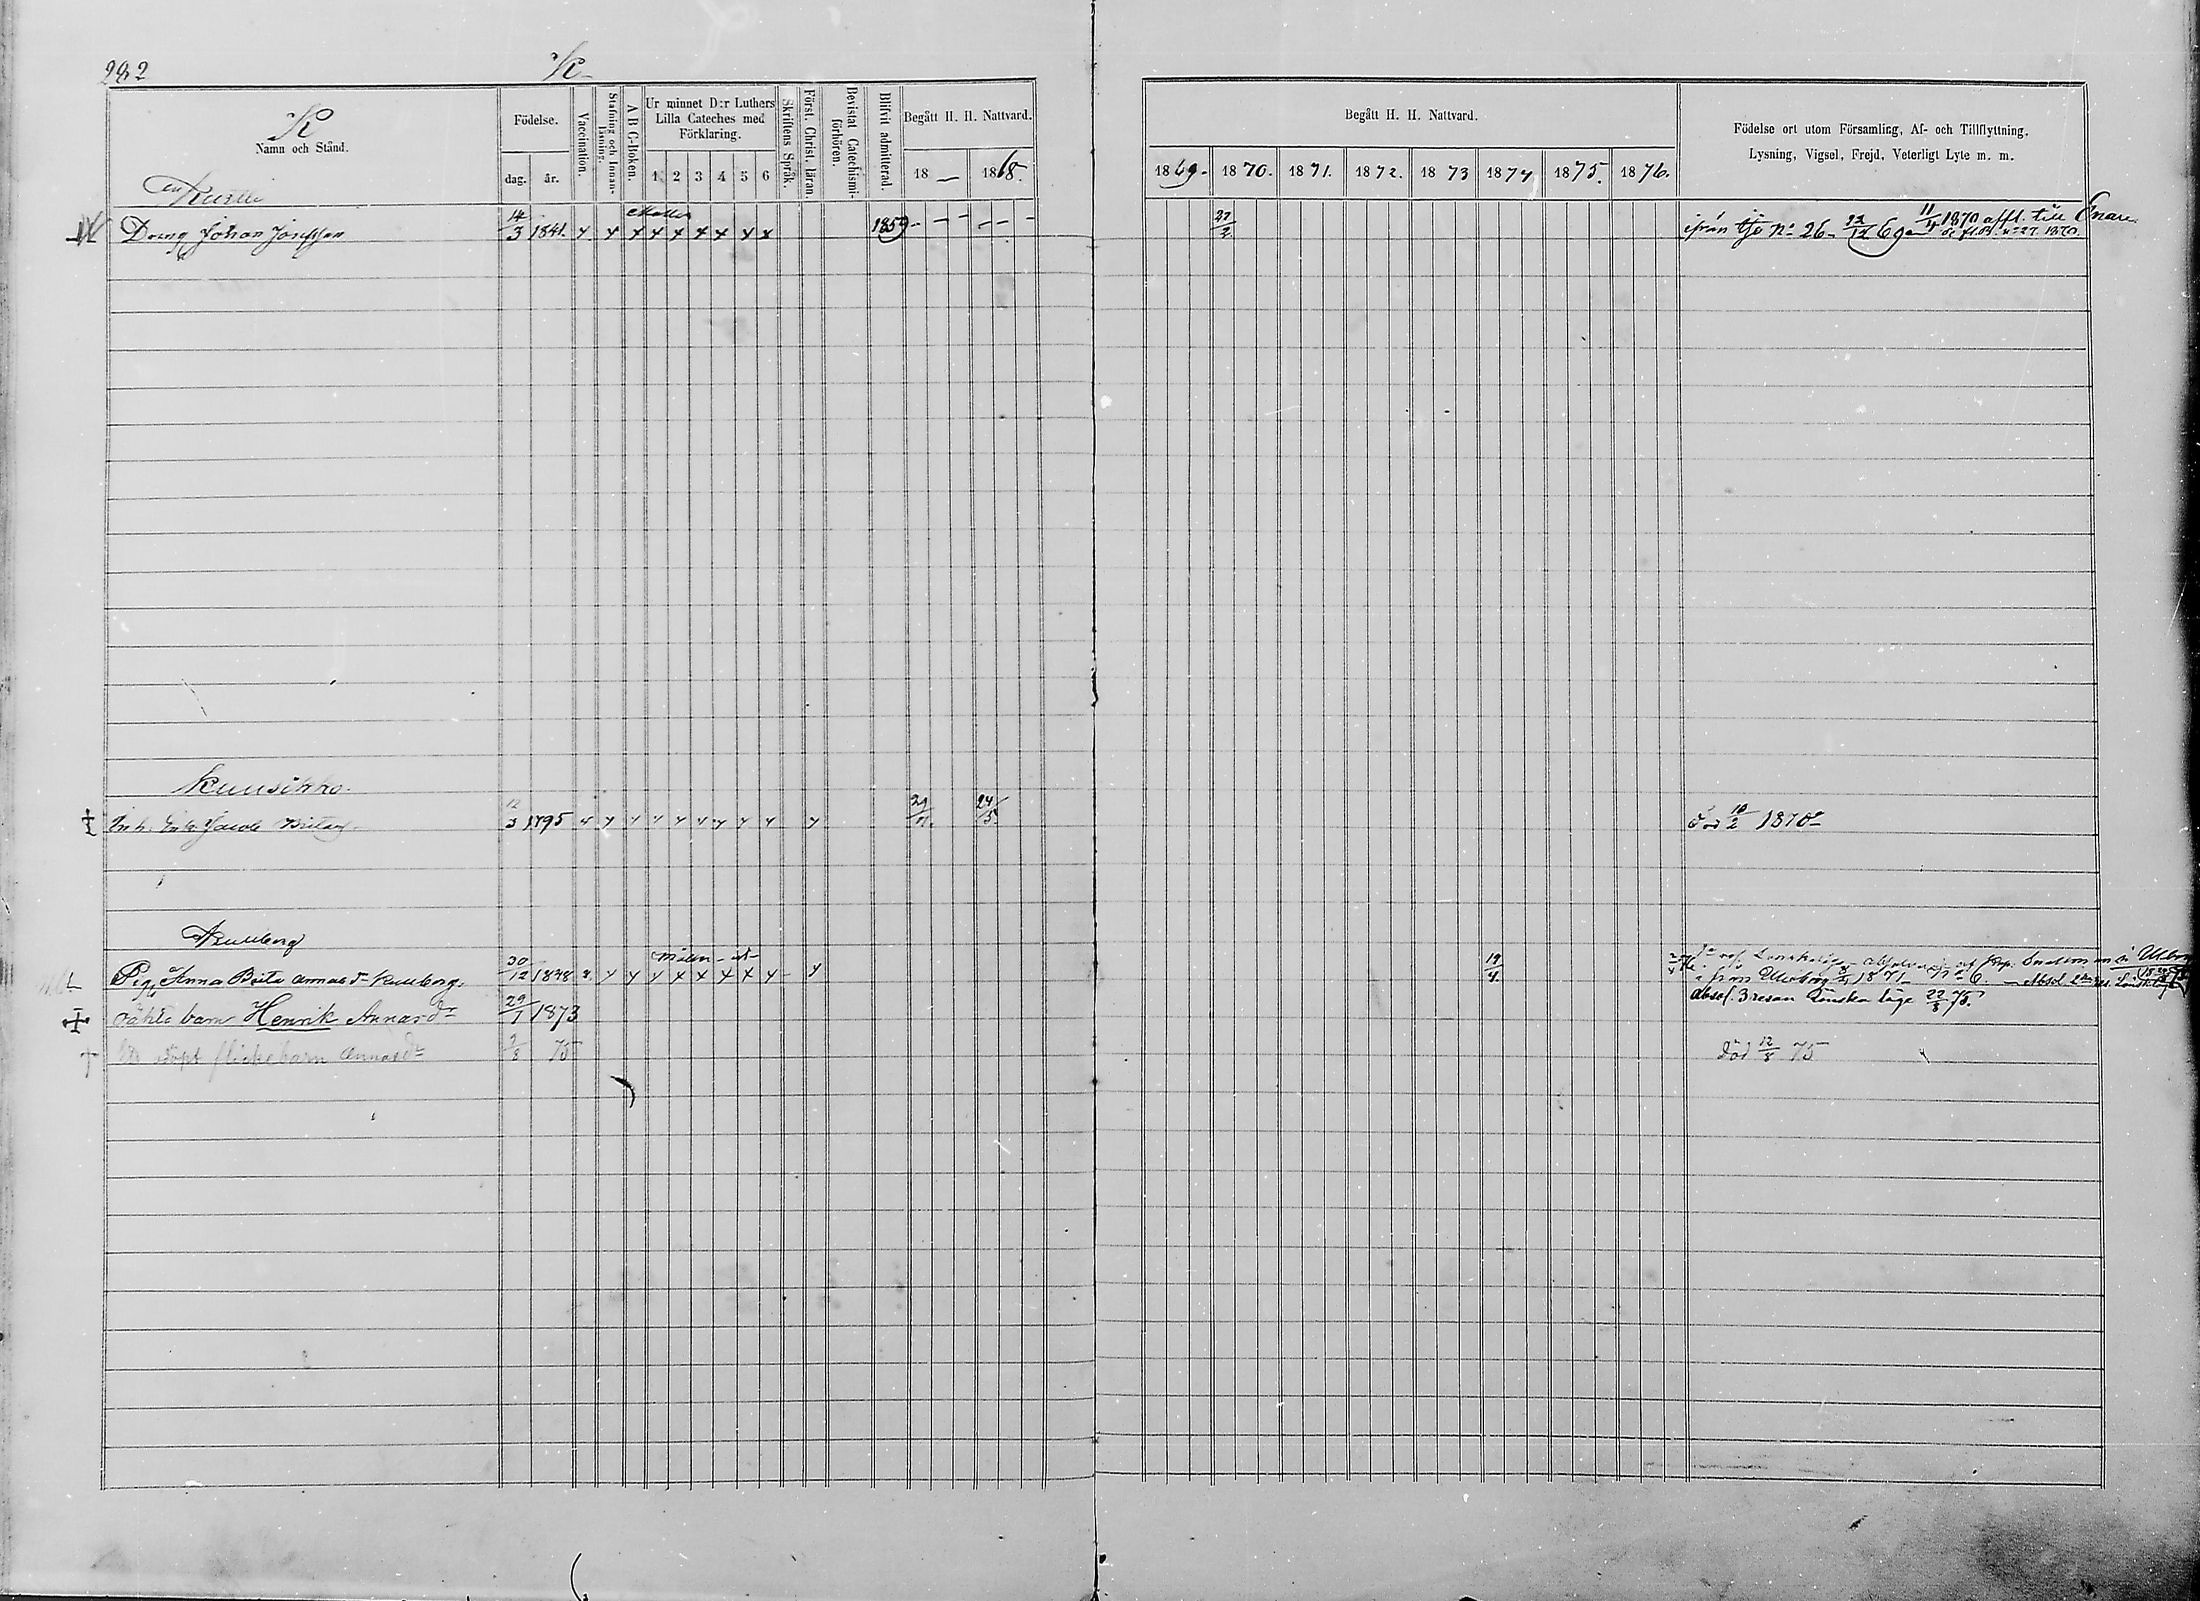 282
K
K
Namn och Stånd.
Födelse.
dag. år.
Vaccination.
Stafning och Innanläsning.
A B C-Boken.
Ur minnet D:r Luthers Lilla Cateches med Förklaring.
1 2 3 4 5 6
Skriftens Språk.
Först. Christ. läran.
Bevistat Catechismiförhören.
Blifvit admitterad.
Begått H. H. Nattvard.
18 — 1868.
Begått H. H. Nattvard.
1869. 1870. 1871. 1872. 1873 1874 1875. 1876.
Födelse ort utom Församling, Af- och Tillflyttning,
Lysning, Vigsel, Frejd, Veterligt Lyte m. m.
Dreng Johan 14/3 1841. x x x x x x x x x 1859 - - - - - 27/2 ifrån No 26 - 22/12 69 11/4 1870 affl. till Enare
Kuusikko.
Jacob 12/3 1795 x x x x x x x x x x 29/11. 24/5. död 10/2 1870
Kuuberg
Pig. Anna Brita Annasdr Kuuberg. 30/12 1848 x x x x x x x x x x 19/4. från Uleåborg 1871 No 6.
absol. 3 resan 22/8 75.
barn Henrik Annasdr 29/1 1873
döpt flickebarn Annasdr 75 död 12/8 75